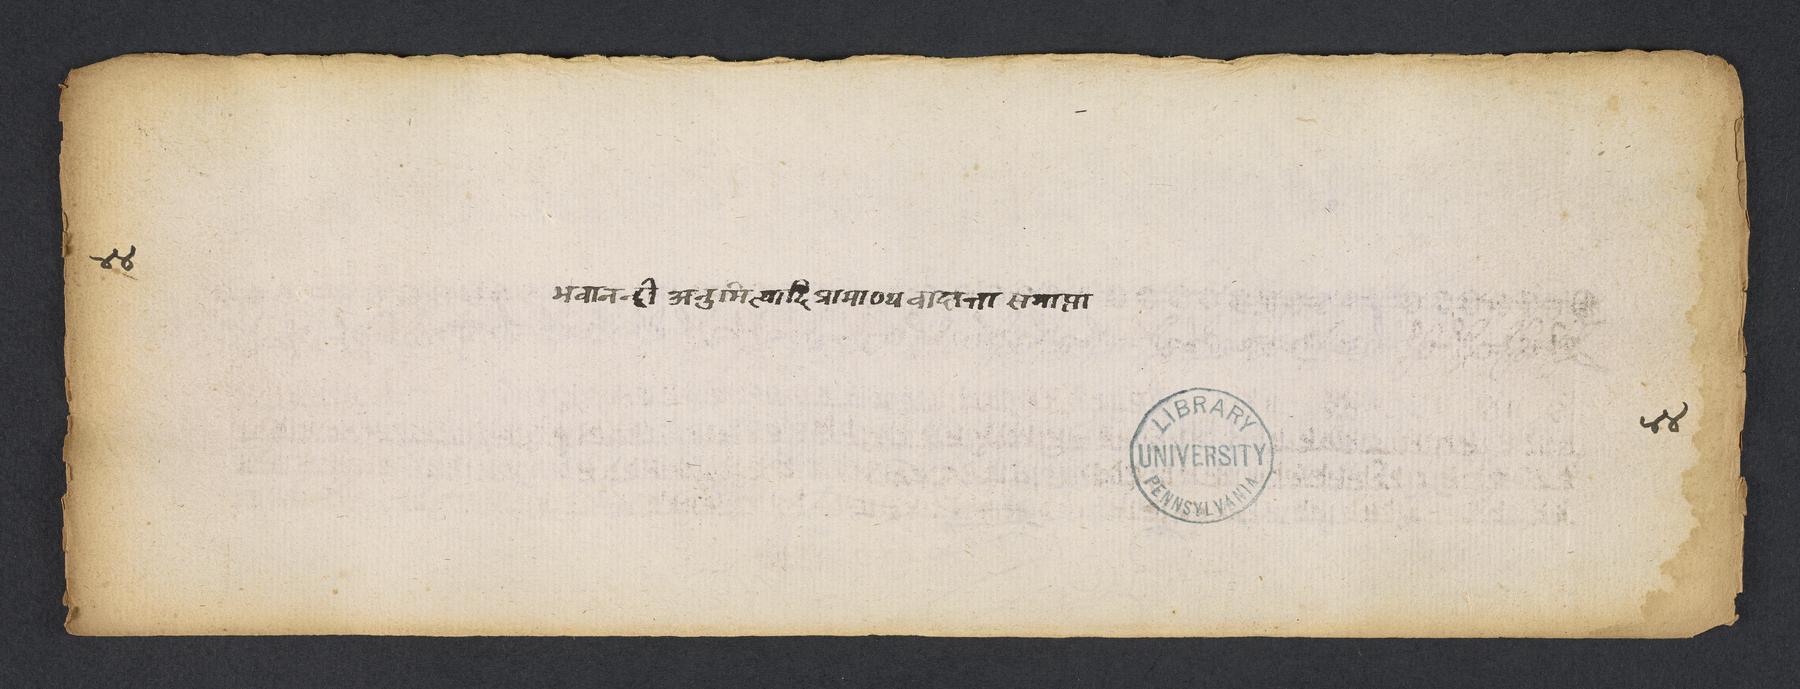 ४४
भवानन्दी अनुमित्यादि प्रामाण्य वादान्ता समाप्ता
४४
LIBRARY
UNIVERSITY
PENNSYLVANIA